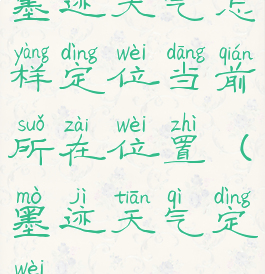 墨迹天气怎
yàng dìng wèi dāng qián
样定位当前
suǒ zài wèi zhì
所在位置（
mò jì tiān qì dìng
墨迹天气定
wèi